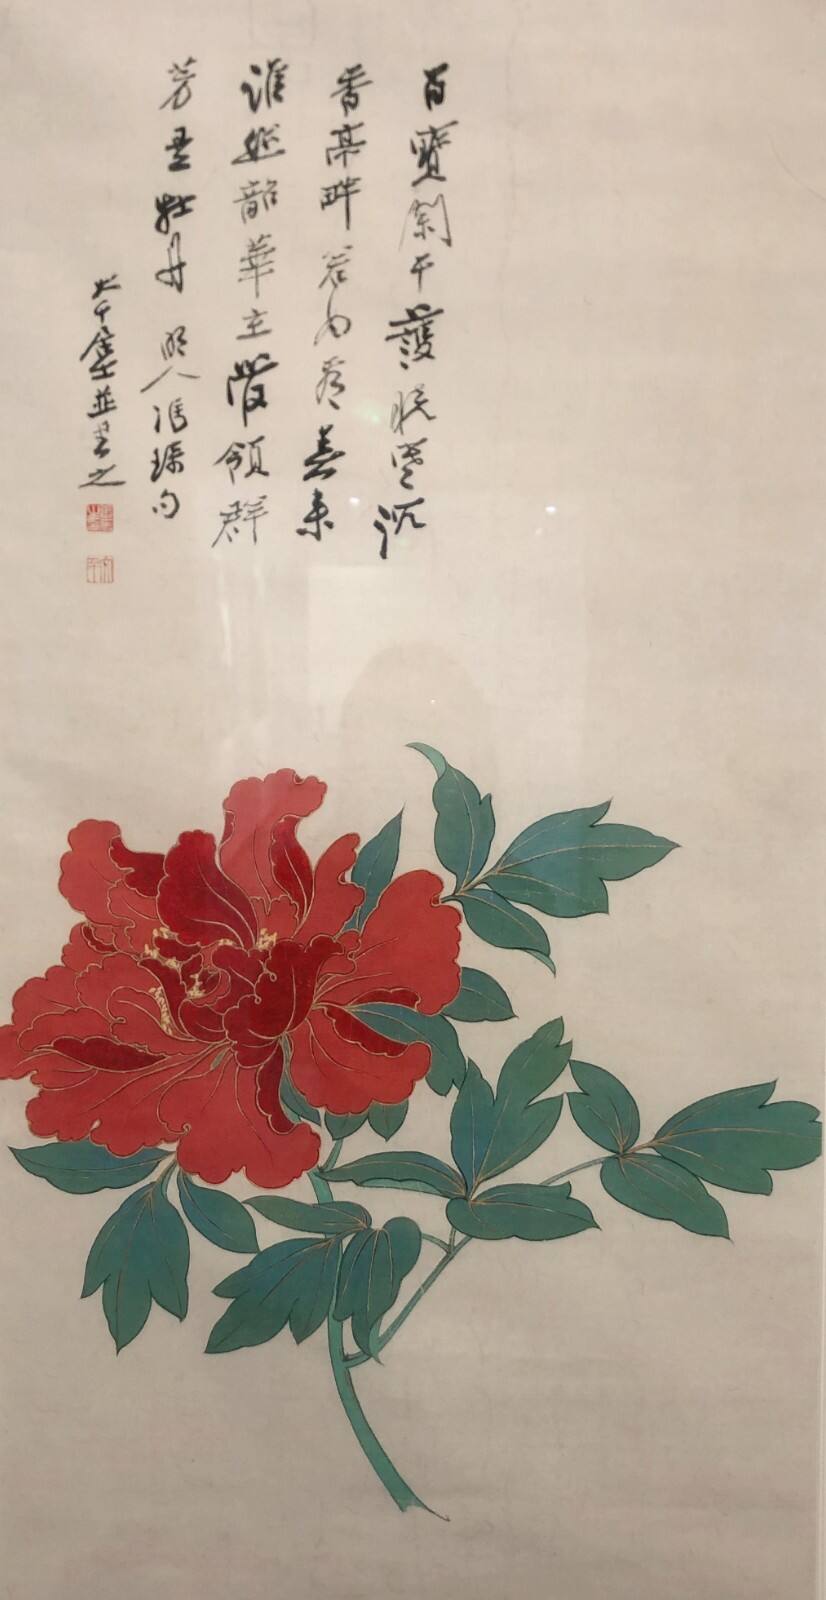 百寶闌干護曉寒沉
香亭畔若為看春来
誰韶華主領群
芳是牡丹 明人馮琦句
大千居士並書之
大千